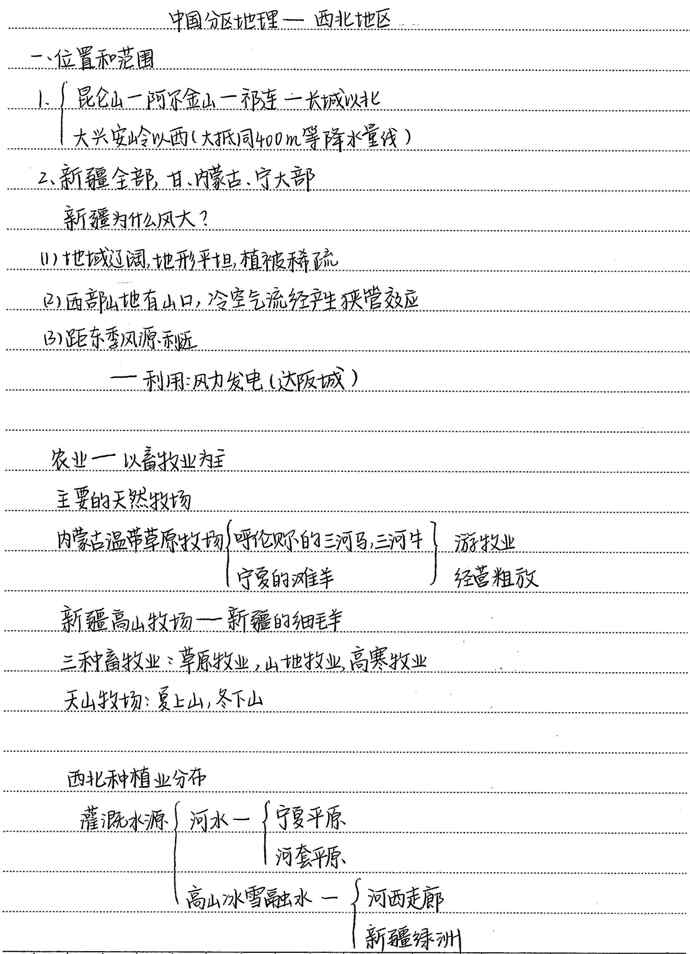 中国分区地理— 西北地区
一、位置和范围
1. { 昆仑山—阿尔金山—祁连—长城以北
大兴安岭以西(大抵同400m等降水量线)
2、新疆全部, 甘、内蒙古、宁大部
新疆为什么风大?
(1)地域辽阔,地形平坦,植被稀疏
(2)西部山地有山口,冷空气流经产生狭管效应
(3)距冬季风源地近
— 利用:风力发电(达阪城)
农业— 以畜牧业为主
主要的天然牧场
内蒙古温带草原牧场 { 呼伦贝尔的三河马,三河牛 } 游牧业
宁夏的滩羊 经营粗放
新疆高山牧场— 新疆的细毛羊
三种畜牧业:草原牧业,山地牧业,高寒牧业
天山牧场:夏上山,冬下山
西北种植业分布
灌溉水源 { 河水— { 宁夏平原
河套平原
高山冰雪融水 — { 河西走廊
新疆绿洲